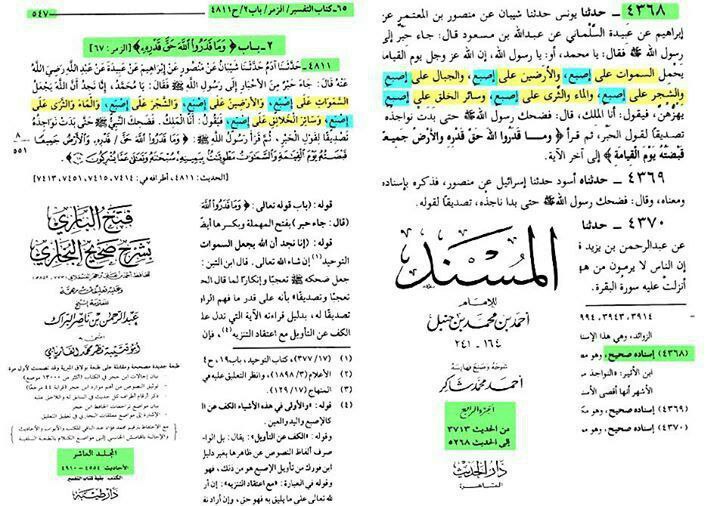 ٤٣٦٨ ـ حدثنا يونس حدثنا شيبان عن منصور بن المعتمر عن
إبراهيم عن عبيدة السَّلْماني عن عبدالله بن مسعود قال: جاء حبر إلى
رسول الله ﷺ فقال: يا محمد، أو: يا رسول الله، إن الله عز وجل يوم القيامة
يحمل السموات على إصبع، والأرضين على إصبع، والجبال على إصبع
والشجر على إصبع، والماء والثرى على إصبع، وسائر الخلق على إصبع
يهزهن، فيقول: أنا الملك، قال: فضحك رسول الله ﷺ حتى بدت نواجذه
تصديقًا لقول الحبر، ثم قرأ ﴿ وما قدروا الله حق قدره والأرض جميعًا
قبضته يوم القيامة ﴾ إلى آخر الآية.
٤٣٦٩ ـ حدثناه أسود حدثنا إسرائيل عن منصور، فذكره بإسناده
ومعناه، وقال: فضحك رسول الله ﷺ حتى بدا ناجذه، تصديقًا لقوله.
٤٣٧٠ ـ حدثنا
عن عبدالرحمن بن يزيد
إن الناس لا يرمون من
أنزلت عليه سورة البقرة.
٣٩١٤، ٣٩٤٣، ٩٩٤
الزوائد، وهي هذا الإسنا
(٤٣٦٨) إسناده صحيح، وهو
ابن الأثير: «النواجذ
الأشهر أنها أقصى الأسنا
(٤٣٦٩) إسناده صحيح، وهو
(٤٣٧٠) إسناده صحيح، وهو
المسند
للإمام
أحمد بن محمد بن حنبل
١٦٤ ـ ٢٤١
شرحه وصنع فهارسه
أحمد محمد شاكر
الجزء الرابع
من الحديث ٣٧١٣
إلى الحديث ٥٢٦٨
دار الحديث
القاهرة
٦٥ـ كتاب التفسير/ الزمر/ باب٢/ ح٤٨١١
٥٤٧
٢ـ باب ﴿وَمَا قَدَرُوا اللَّهَ حَقَّ قَدْرِهِ﴾ [الزمر: ٦٧]
٤٨١١ ـ حَدَّثَنَا آدَمُ حَدَّثَنَا شَيْبَانُ عَنْ مَنْصُورٍ عَنْ إِبْرَاهِيمَ عَنْ عَبِيدَةَ عَنْ عَبْدِ اللَّهِ رَضِيَ اللَّهُ
عَنْهُ قَالَ: جَاءَ حَبْرٌ مِنَ الأَحْبَارِ إِلَى رَسُولِ اللَّهِ ﷺ فَقَالَ: يَا مُحَمَّدُ، إِنَّا نَجِدُ أَنَّ اللَّهَ يَجْعَلُ
السَّمَوَاتِ عَلَى إِصْبَعٍ، وَالأَرَضِينَ عَلَى إِصْبَعٍ، وَالشَّجَرَ عَلَى إِصْبَعٍ، وَالْمَاءَ وَالثَّرَى عَلَى
إِصْبَعٍ، وَسَائِرَ الْخَلَائِقِ عَلَى إِصْبَعٍ، فَيَقُولُ: أَنَا الْمَلِكُ. فَضَحِكَ النَّبِيُّ ﷺ حَتَّى بَدَتْ نَوَاجِذُهُ
تَصْدِيقًا لِقَوْلِ الْحَبْرِ، ثُمَّ قَرَأَ رَسُولُ اللَّهِ ﷺ: ﴿وَمَا قَدَرُوا اللَّهَ حَقَّ / قَدْرِهِ، وَالأَرْضُ جَمِيعًا
٨
٥٥١
قَبْضَتُهُ يَوْمَ الْقِيَامَةِ وَالسَّمَوَاتُ مَطْوِيَّاتٌ بِيَمِينِهِ، سُبْحَانَهُ وَتَعَالَى عَمَّا يُشْرِكُونَ﴾
[الحديث: ٤٨١١، أطرافه في: ٧٤١٤، ٧٤١٥، ٧٤٥١، ٧٥١٣]
قوله: (باب قوله تعالى: ﴿وَمَا قَدَرُوا اللَّهَ
قوله: (جاء حبر) بفتح المهملة وبكسرها
قوله: (إنا نجد أن الله يجعل السموات
التوحيد(١) إن شاء الله تعالى. قال ابن التين:
جعل ضحكه ﷺ تعجبًا وإنكارًا لما قال
تعجبًا وتصديقًا» بأنه على قدر ما فهم
تصديقًا له، بدليل قراءته الآية التي تدل
الكف عن التأويل مع اعتقاد التنزيه(٤)،
(١) (٣٧٧/١٧)، كتاب التوحيد، باب١٩، ح
(٢) الأعلام (١٨٩٨/٣)، وانظر التعليق عليه في
(٣) المنهاج (١٢٩/١٧).
(٤) قوله: «والأولى في هذه الأشياء الكف عن
قوله: «الكف عن التأويل»: يقال: بل
صرف ألفاظ النصوص عن ظاهرها بغير دليل
ابن فورك من تأويل الإصبع هو من ذلك،
وقوله في العبارة: «مع اعتقاد التنزيه»: إن أراد
لله تعالى على ما يليق به فهو حق، وإن أراد
فتح الباري
بشرح صحيح البخاري
للحافظ أحمد بن علي بن حجر العسقلاني
وعليه تعليقات مهمة
للعلامة الشيخ
عبد الرحمن بن ناصر البراك
اعتنى به
أبو قتيبة نظر محمد الفاريابي
المجلد العاشر
الأحاديث ٤٥٥٤ ـ ٤٩١٠
كتاب التفسير
دار طيبة